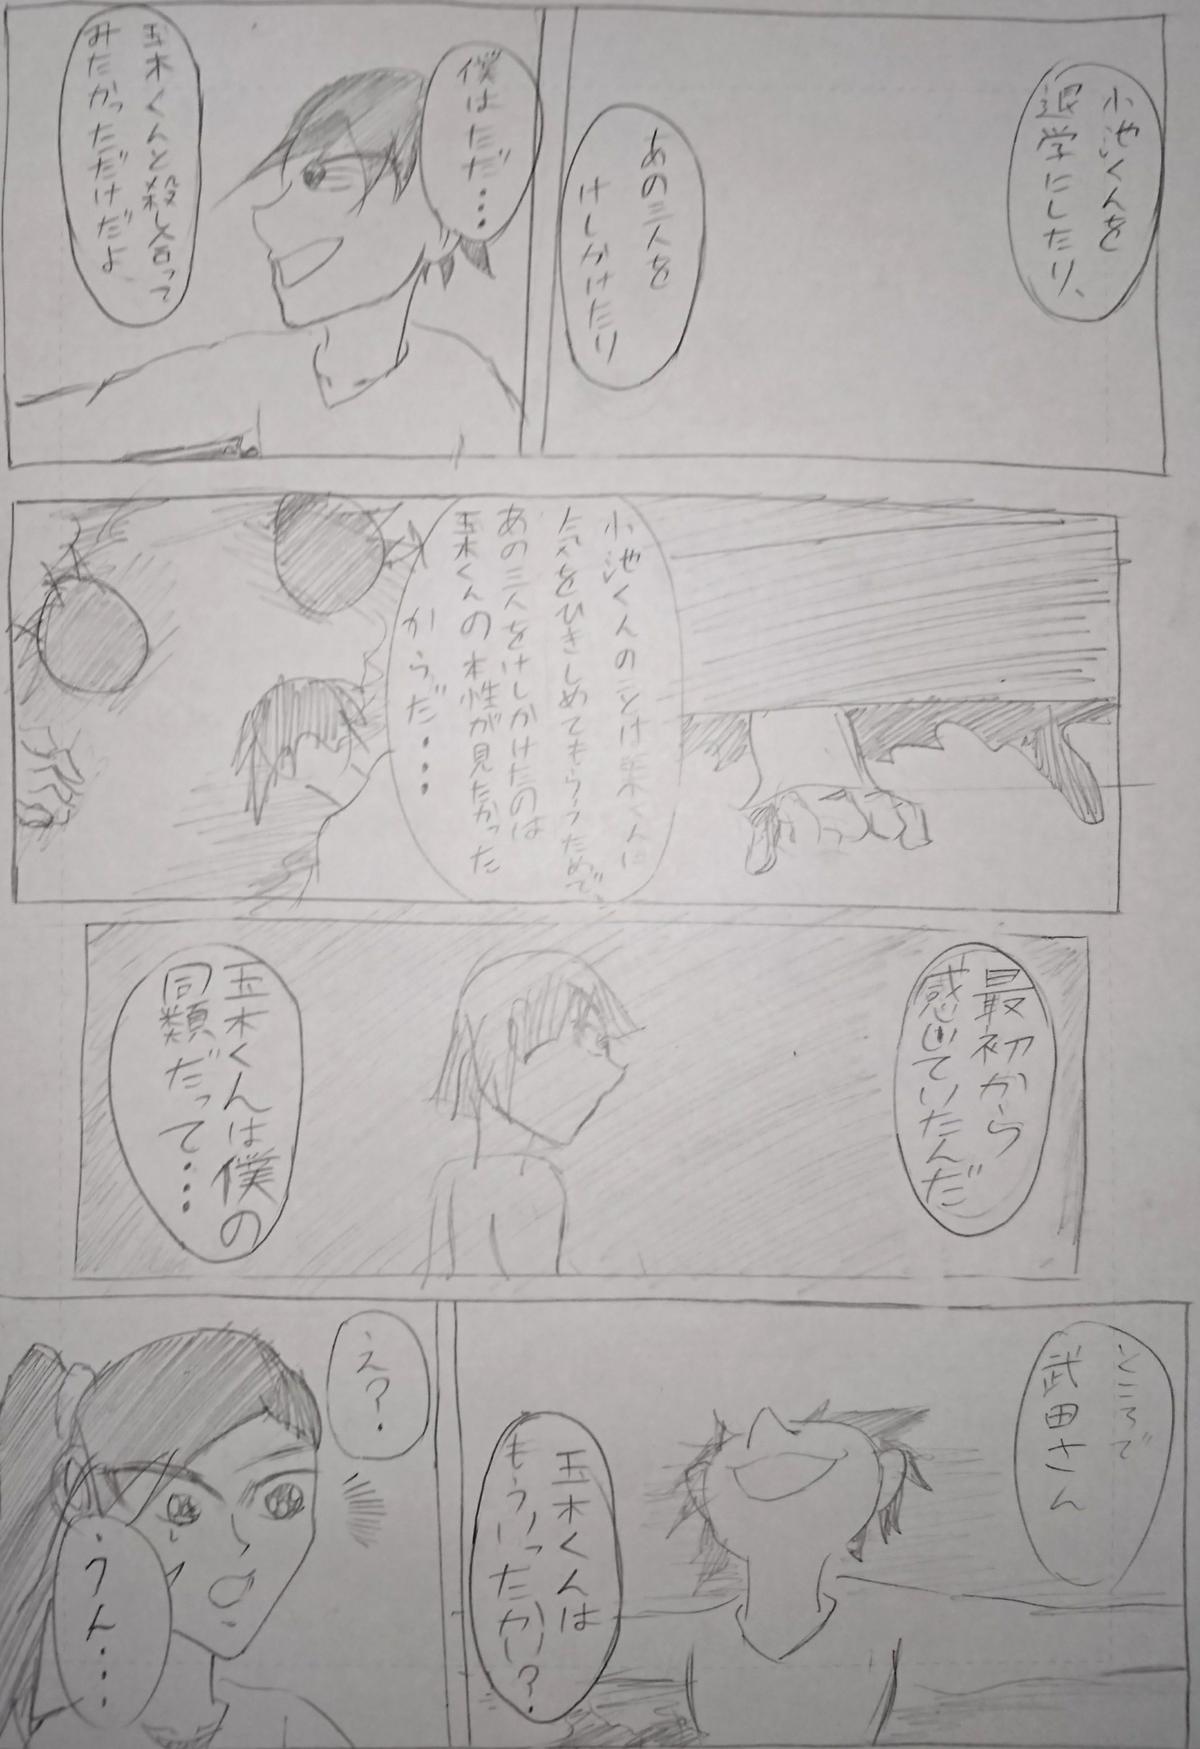 小池くんを
退学にしたり、
あの三人を
けしかけたり
僕はただ・・・
玉木くんと殺し合って
みたかっただけだよ
小池くんのことは玉木くんに
気をひきしめてもらうためで、
あの三人をけしかけたのは
玉木くんの本性が見たかった
からだ・・・
最初から
感じていたんだ
玉木くんは僕の
同類だって・・・
ところで
武田さん
玉木くんは
もういったかい?
え?
うん・・・